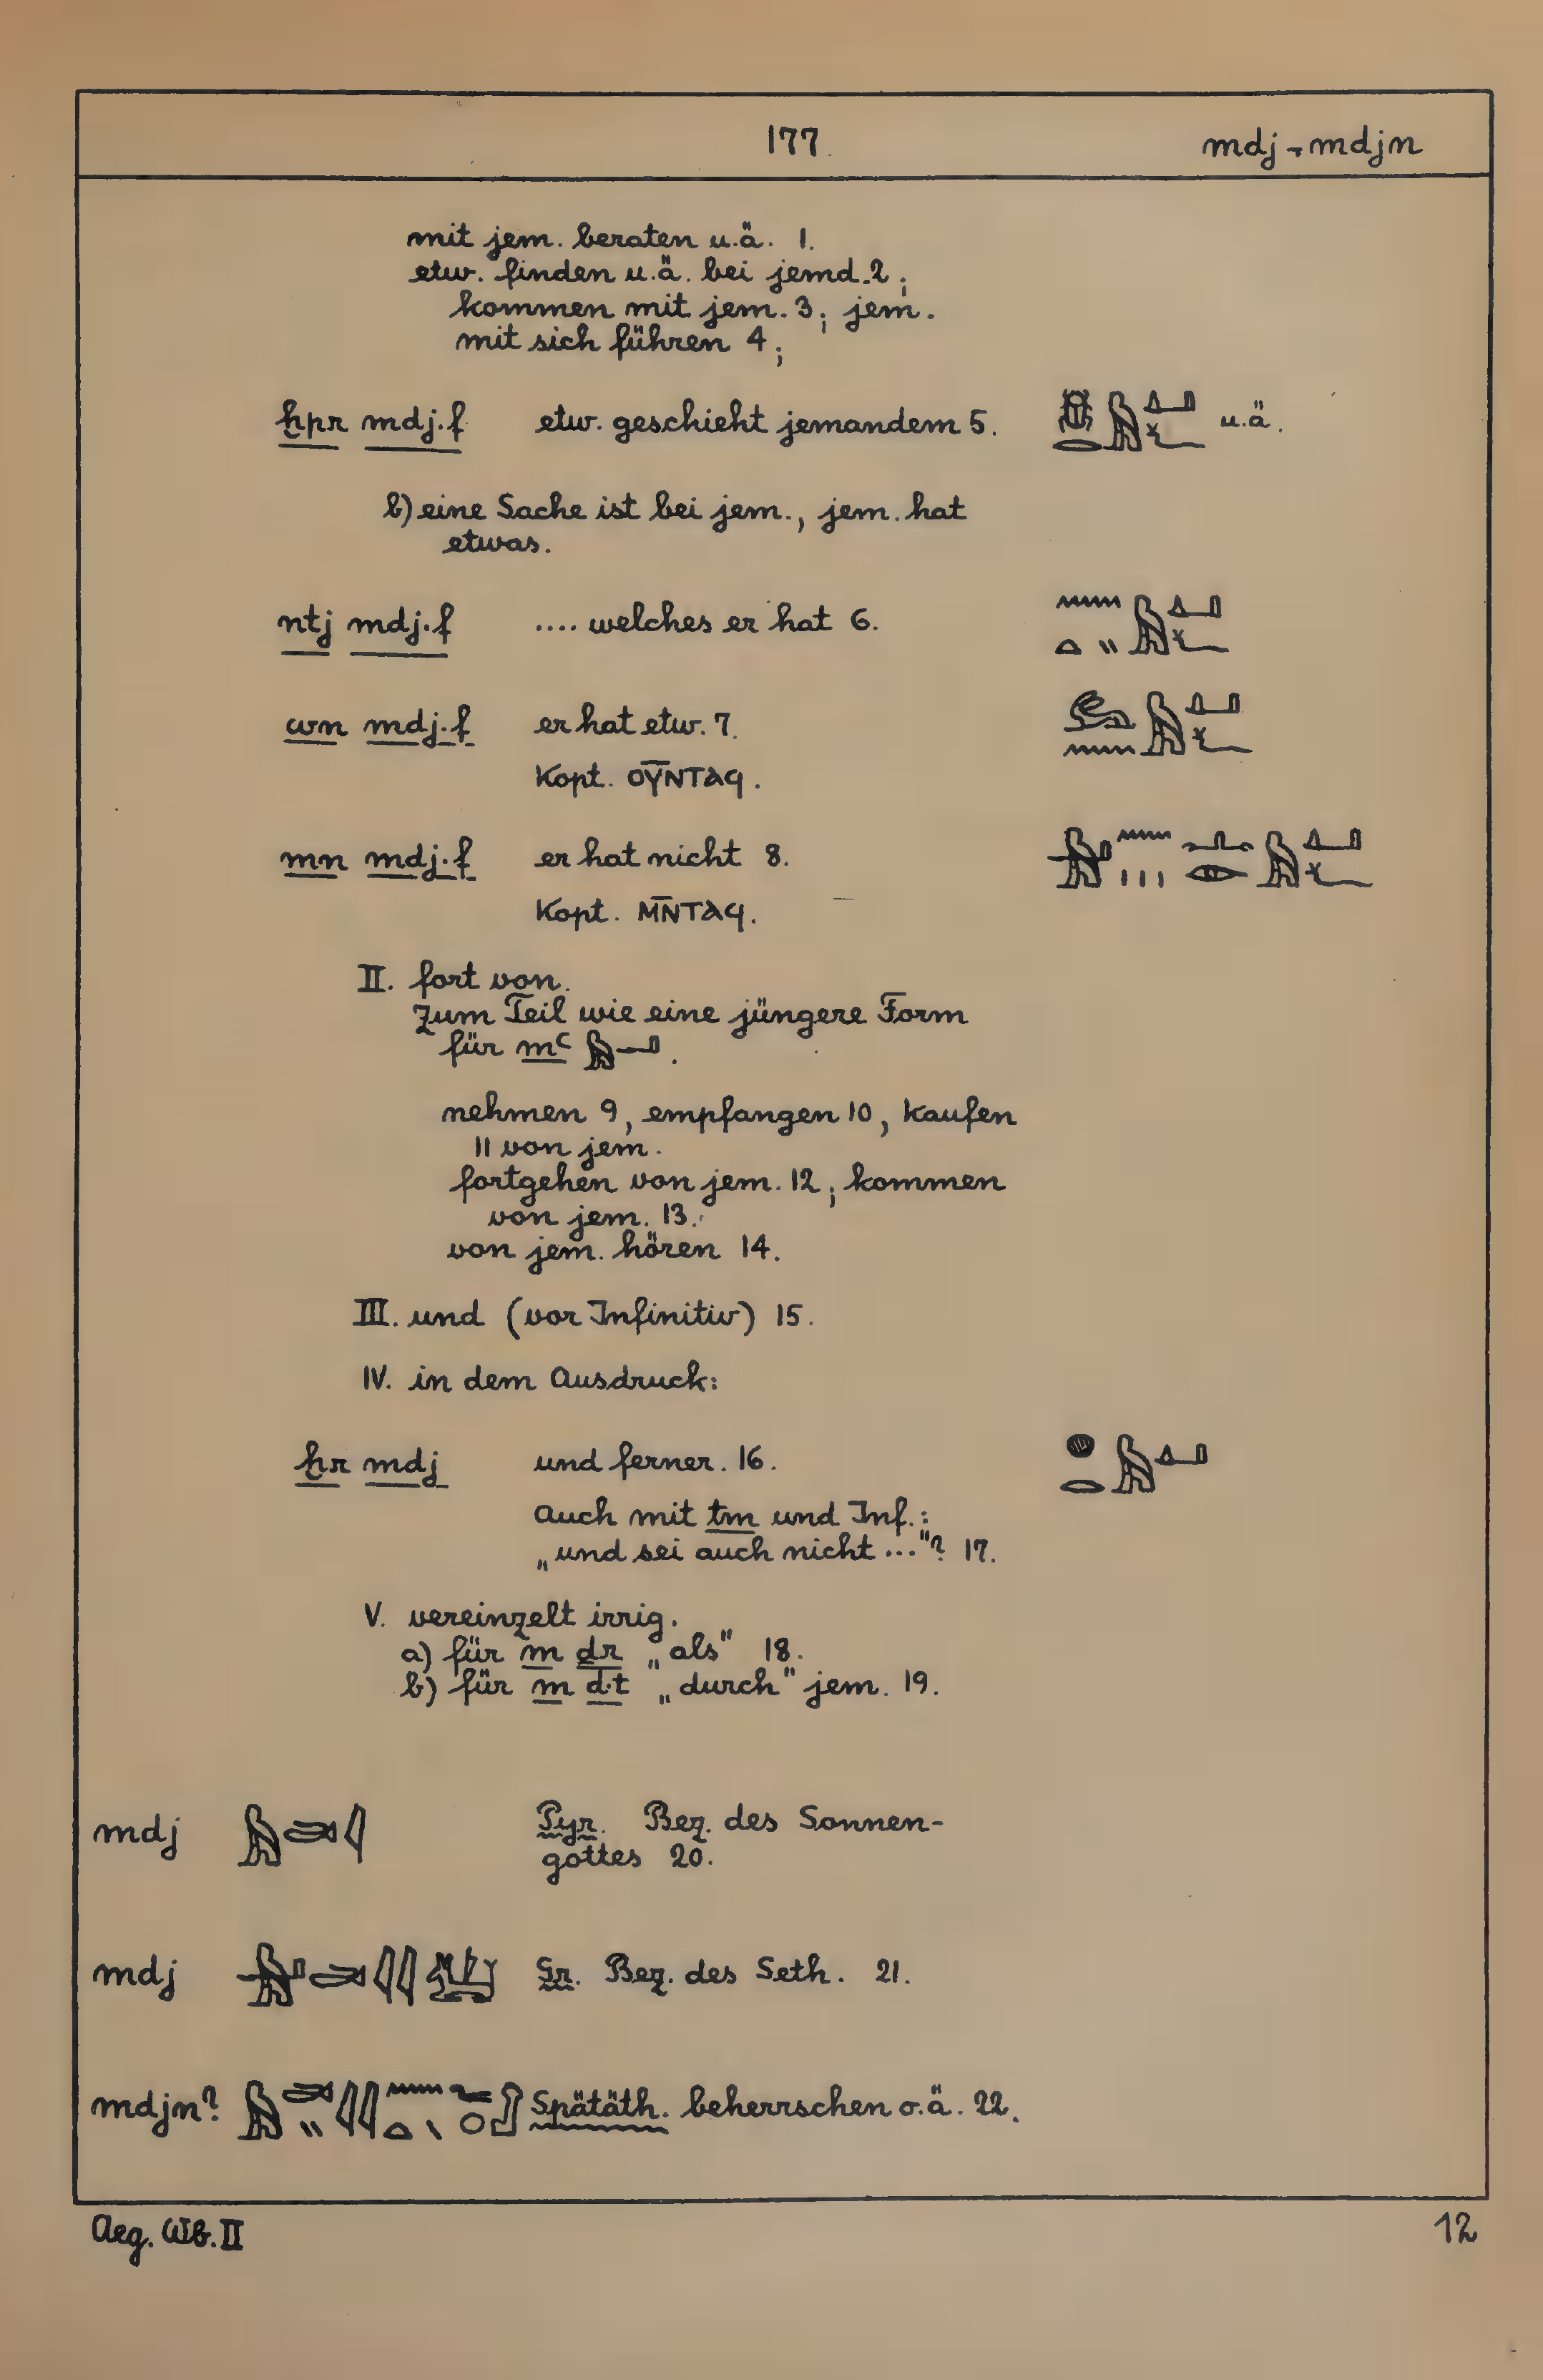 177
mdj - mdjn
mit jem. beraten u.ä. 1.
etw. finden u.ä. bei jemd. 2;
kommen mit jem. 3; jem.
mit sich führen 4;
ḫpr mdj.f etw. geschieht jemandem 5. u.ä.
b) eine Sache ist bei jem., jem. hat
etwas.
ntj mdj.f .... welches er hat 6.
wn mdj.f er hat etw. 7.
Kopt. ⲟⲩ̅ⲛⲧⲁϥ.
mn mdj.f er hat nicht 8.
Kopt. ⲙⲛ̅ⲧⲁϥ.
II. fort von.
Zum Teil wie eine jüngere Form
für mꜥ 𓅓𓂝.
nehmen 9, empfangen 10, kaufen
11 von jem.
fortgehen von jem. 12; kommen
von jem. 13.
von jem. hören 14.
III. und (vor Infinitiv) 15.
IV. in dem Ausdruck:
ḫr mdj und ferner. 16. 𓐍𓂋𓅓𓂞
Auch mit tm und Inf.:
„und sei auch nicht ..."? 17.
V. vereinzelt irrig.
a) für m ḏr „als" 18.
b) für m d.t „durch" jem. 19.
mdj Pyr. Bez. des Sonnen-
gottes 20.
mdj Gr. Bez. des Seth. 21.
mdjn? Spätäth. beherrschen o.ä. 22.
Aeg. Wb. II
12